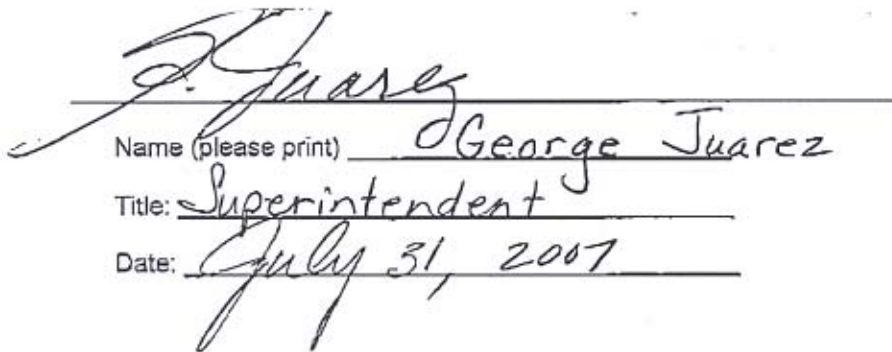 G. Juarez
Name (please print) George Juarez
Title: Superintendent
Date: July 31, 2007